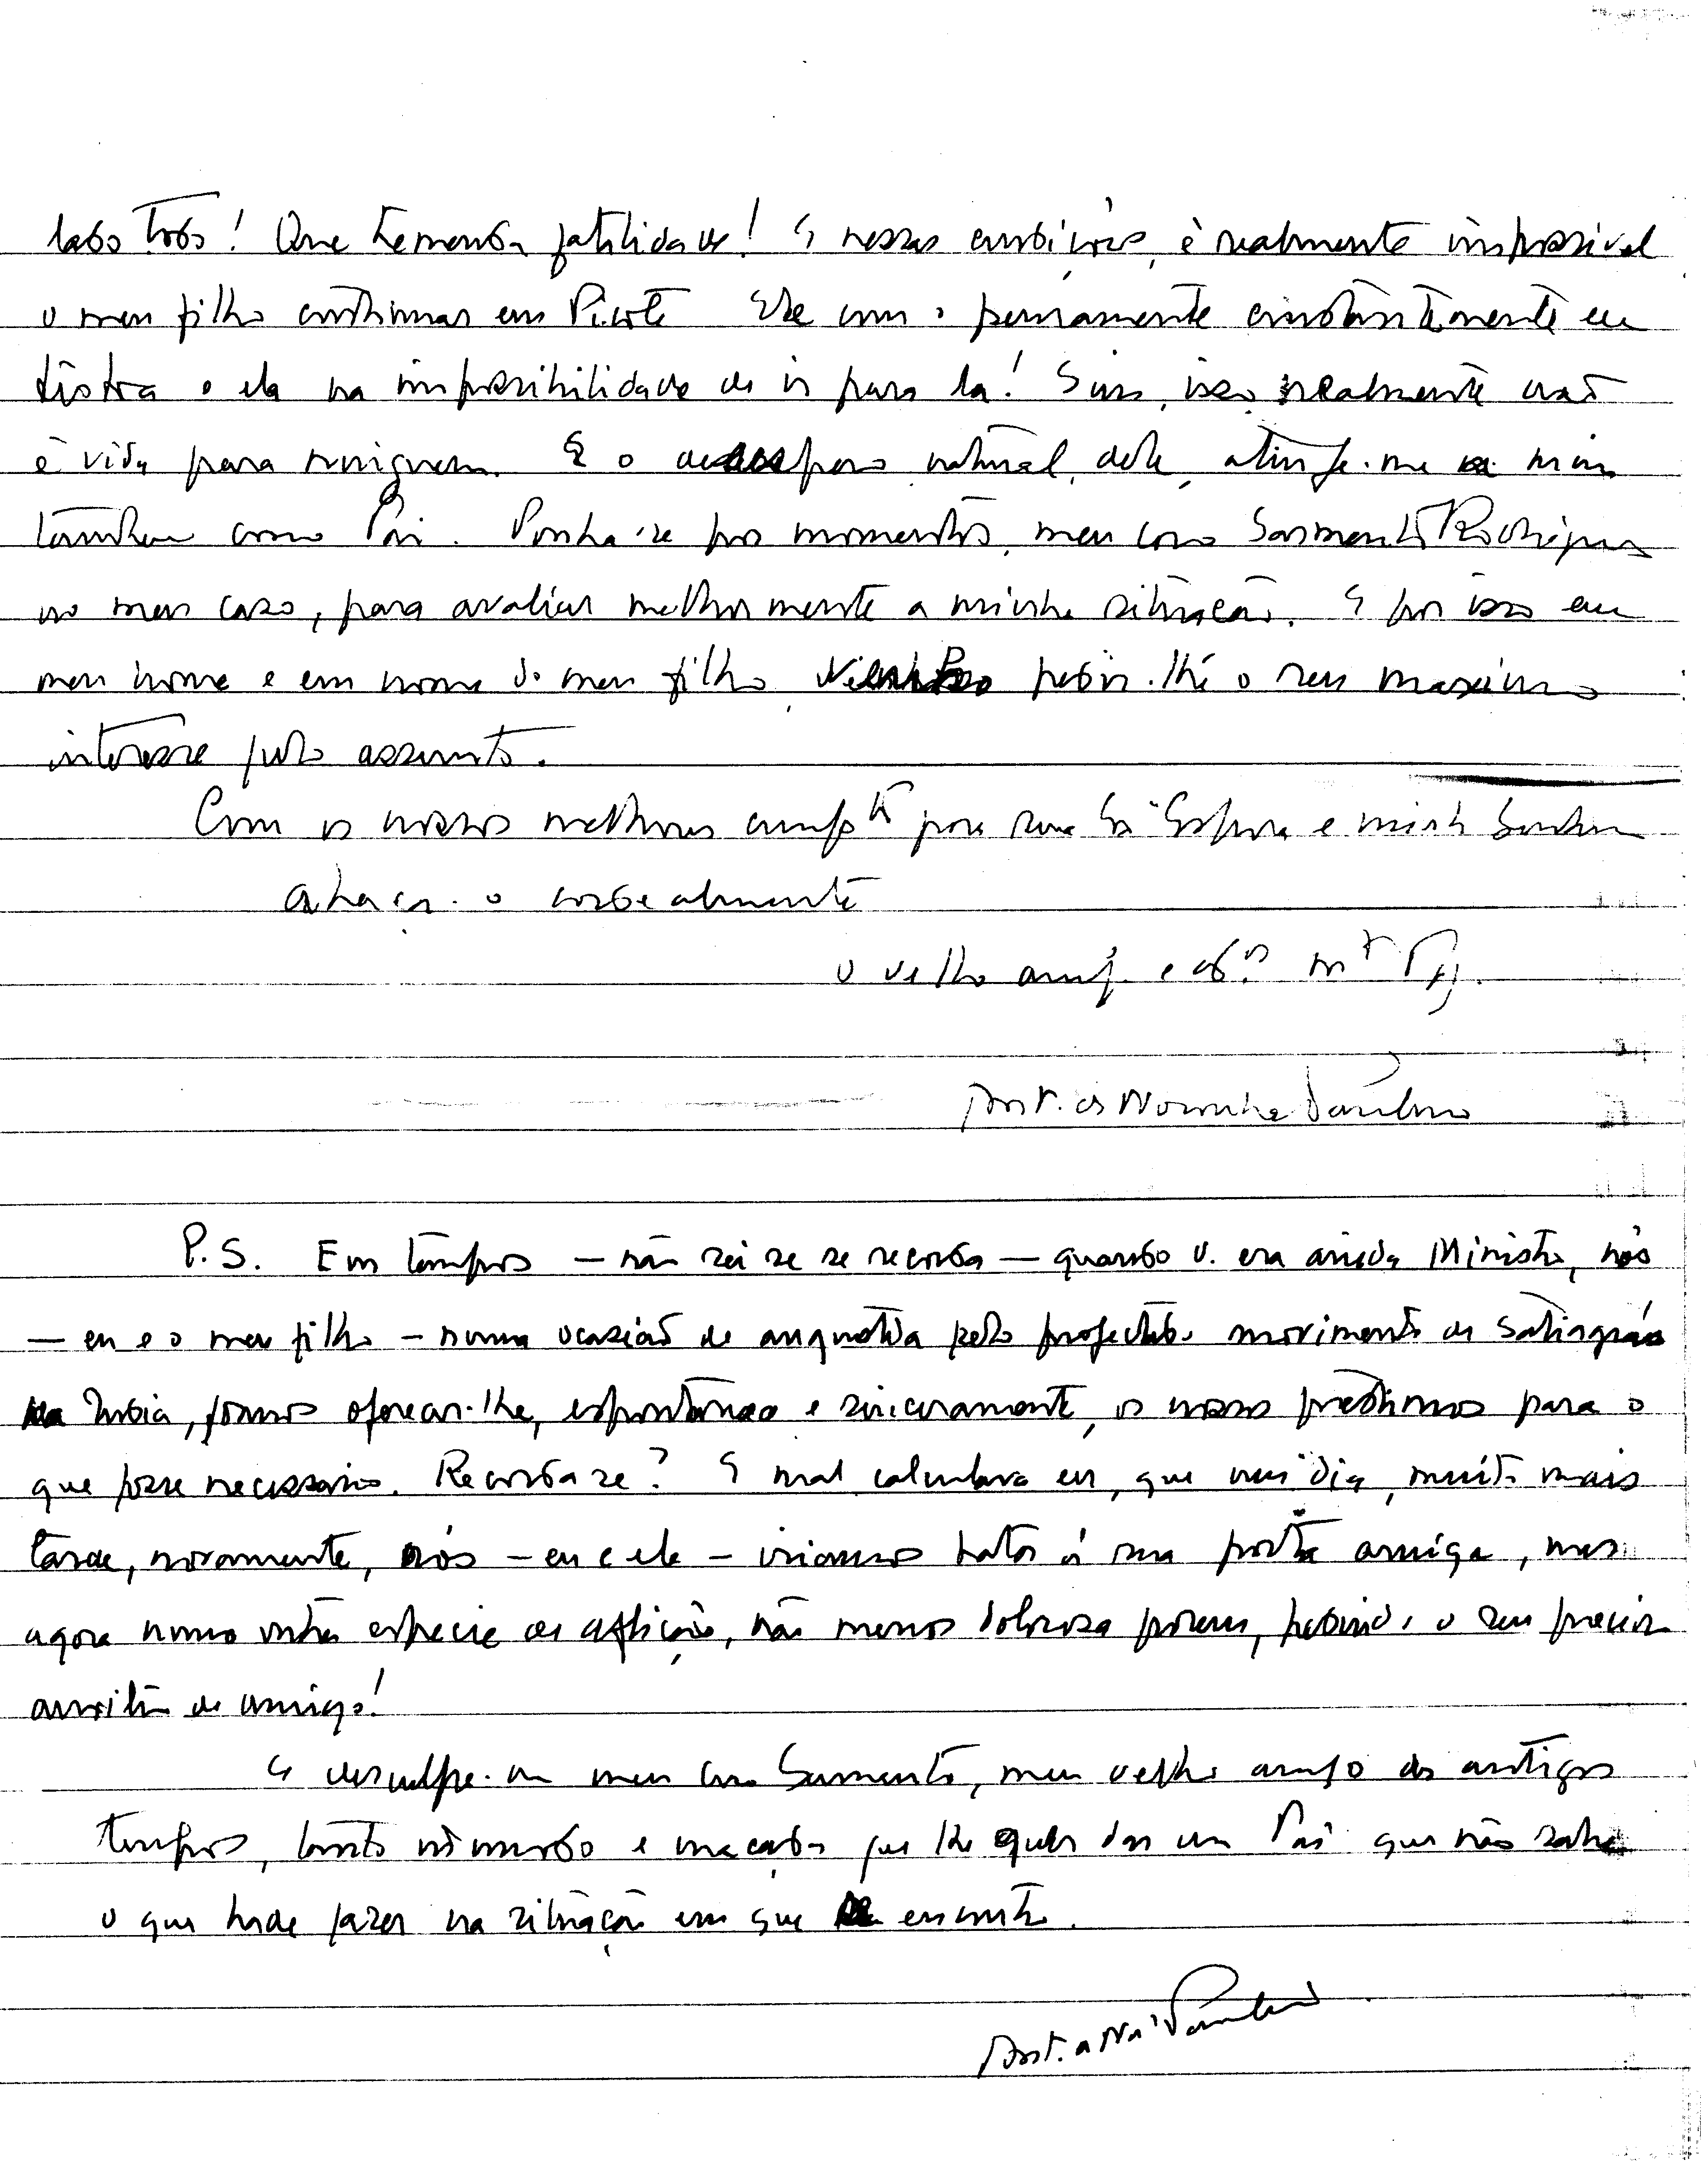 lado todo! Que tremenda fatalidade! E nessas condições, é realmente impossivel
o meu filho continuar em Picote Ele com o pensamento constantemente em
Lisboa e ela na impossibilidade de ir para lá! Sim, isso, realmente não
é vida para ninguem. E o desespero natural, dele, atinge-me a mim
tambem como Pai. Ponha-se por momentos, meu caro Sarmento Rodrigues
no meu caso, para avaliar melhormente a minha situação. E por isso em
meu nome e em nome do meu filho, pedir-lhe o seu maximo
interesse pelo assunto.
Com os nossos melhores cumptos para sua Exª Esposa e minha Senhora
abraça-o cordealmente
o velho amigo e obº mtº
Ant. de Noronha Paulino
P.S. Em tempos — não sei se se recorda — quando V. era ainda Ministro, nós
— eu e o meu filho — numa ocasião de angustia pelo projectado movimento de Satiagrás
na India, fomos oferecer-lhe, espontanea e sinceramente, os nossos prestimos para o
que fosse necessario. Recorda-se? E mal calculava eu, que um dia, muito mais
tarde, novamente, nós — eu e ele — iriamos bater á sua porta amiga, mas
agora numa outra especie de aflição, não menos dolorosa porem, pedindo o seu precioso
auxilio de amigo!
E desculpe-me meu caro Sarmento, meu velho amigo de antigos
tempos, tanto incomodo e maçada que lhe quer dar um Pai que não sabe
o que hade fazer na situação em que se encontra.
Ant. de Nª Paulino